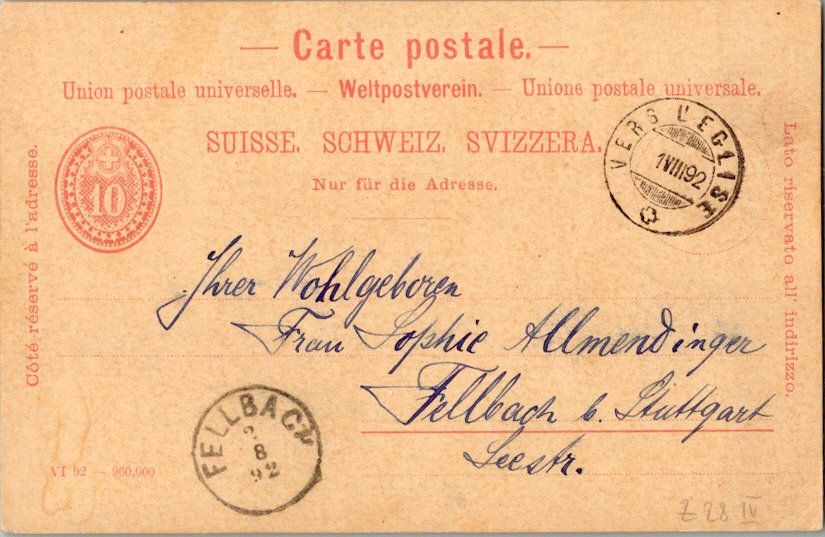 — Carte postale. —
Union postale universelle. — Weltpostverein. — Unione postale universale.
SUISSE. SCHWEIZ. SVIZZERA.
Nur für die Adresse.
10
VERS L'EGLISE
1 VIII 92
Côté réservé à l'adresse.
Lato riservato all' indirizzo.
Ihrer Wohlgeboren
Frau Sophie Allmendinger
Fellbach b. Stuttgart
Seestr.
FELLBACH
8
92
VI 92 — 960,000
Z 28 IV